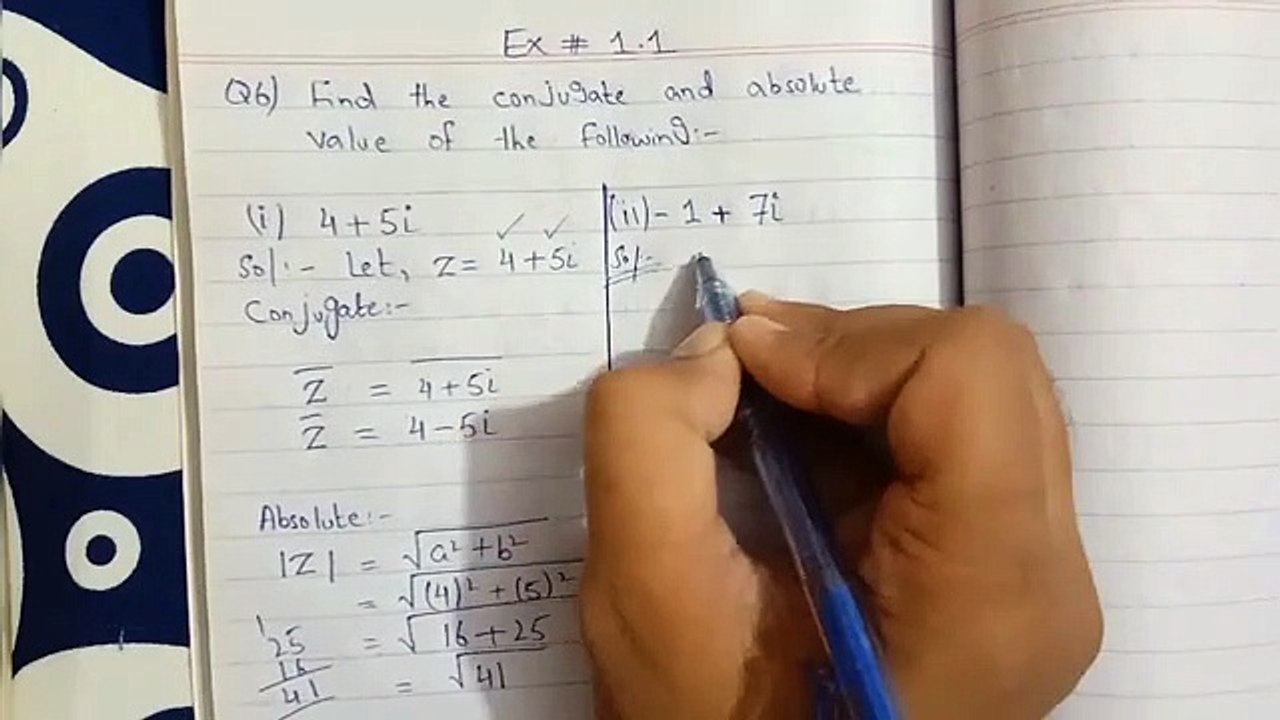 Ex # 1.1
Q6) Find the conjugate and absolute
value of the following:-
(i) 4+5i
Sol:- Let, z= 4+5i
Conjugate:-
z̅ = 4+5i̅
z̅ = 4-5i
Absolute:-
|Z| = √a²+b²
= √(4)²+(5)²
= √16+25
= √41
1
25
16
41
(ii) -1 + 7i
Sol:-